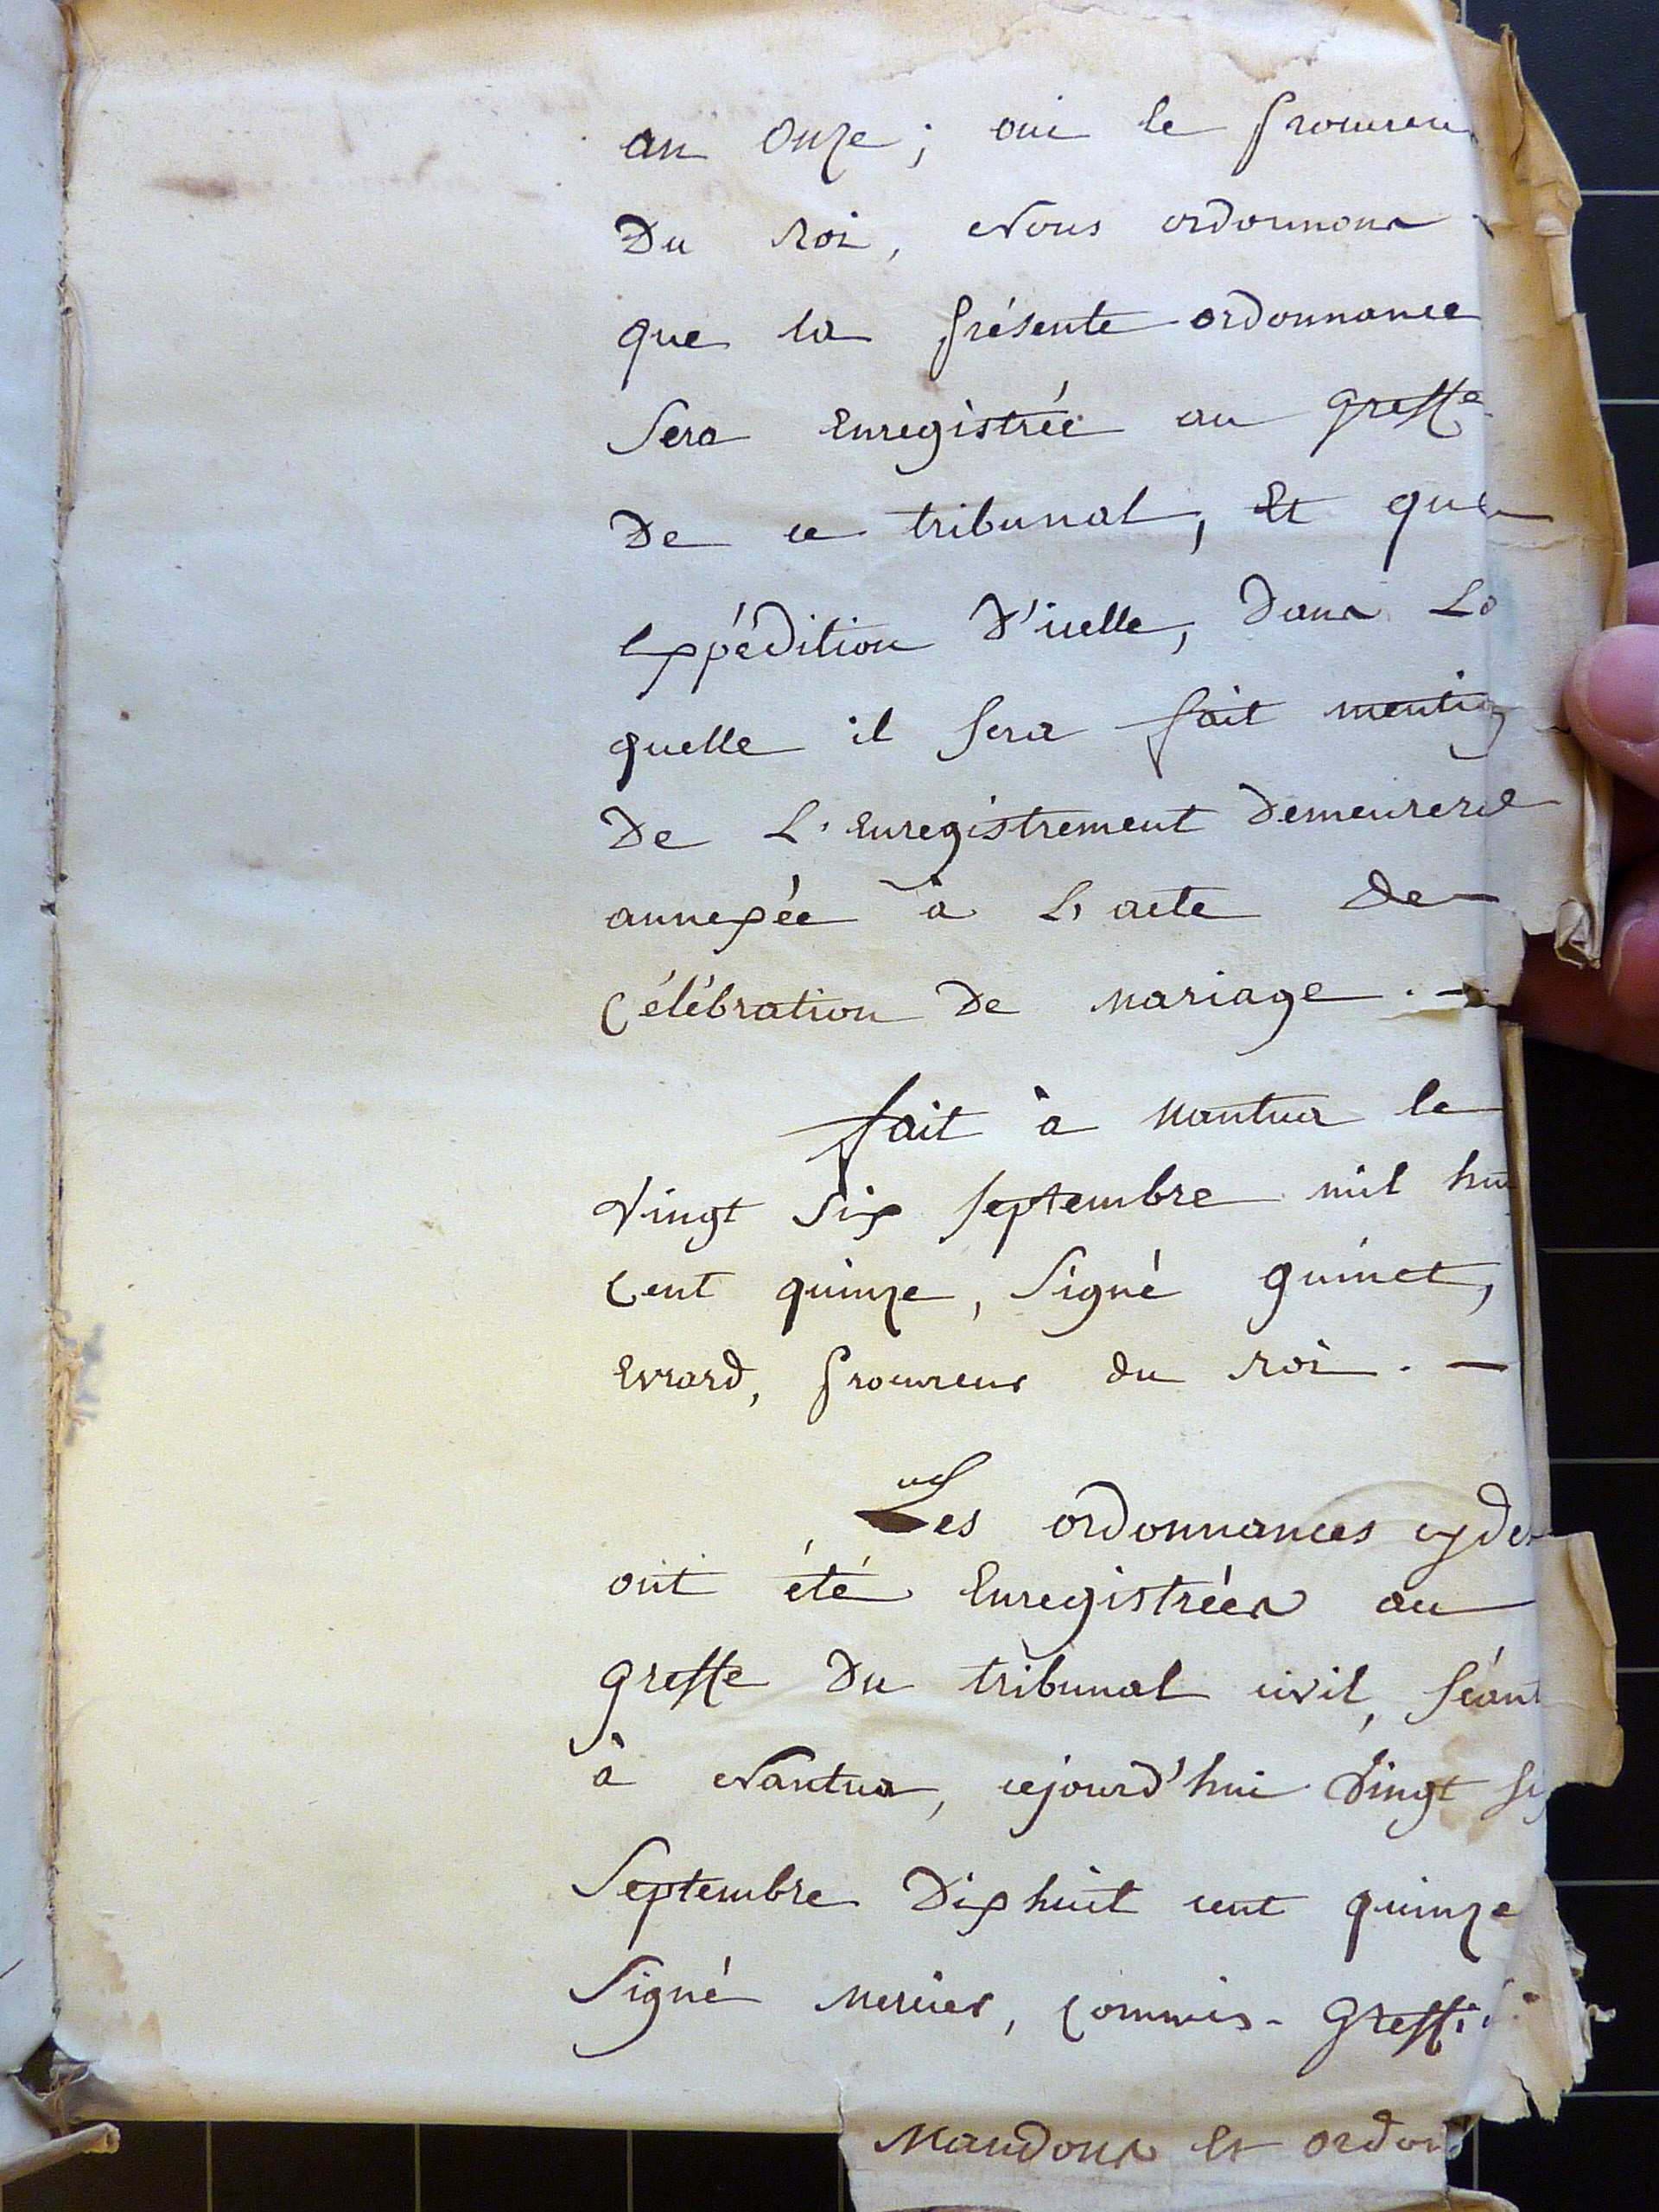 an onze; oui le procureu
Du roi, Nous ordonnons
que la présente ordonnance
Sera Enregistrée au greffe
De ce tribunal, Et que
Expédition D'icelle, Dans La
quelle il Sera fait mention
De L'Enregistrement Demeurera
annexée à L'acte De
Célébration De mariage. —
fait à Nantua le
Vingt Six Septembre mil hui
Cent quinze, Signé guinet,
Evrard, procureur du roi. —
Les ordonnances cydes
ont été Enregistrées au
greffe Du tribunal civil, Séant
à Nantua, cejourd'hui Vingt
Septembre Dix huit cent quinze
Signé mercier, Commis-Greffi
Mandons Et ordon